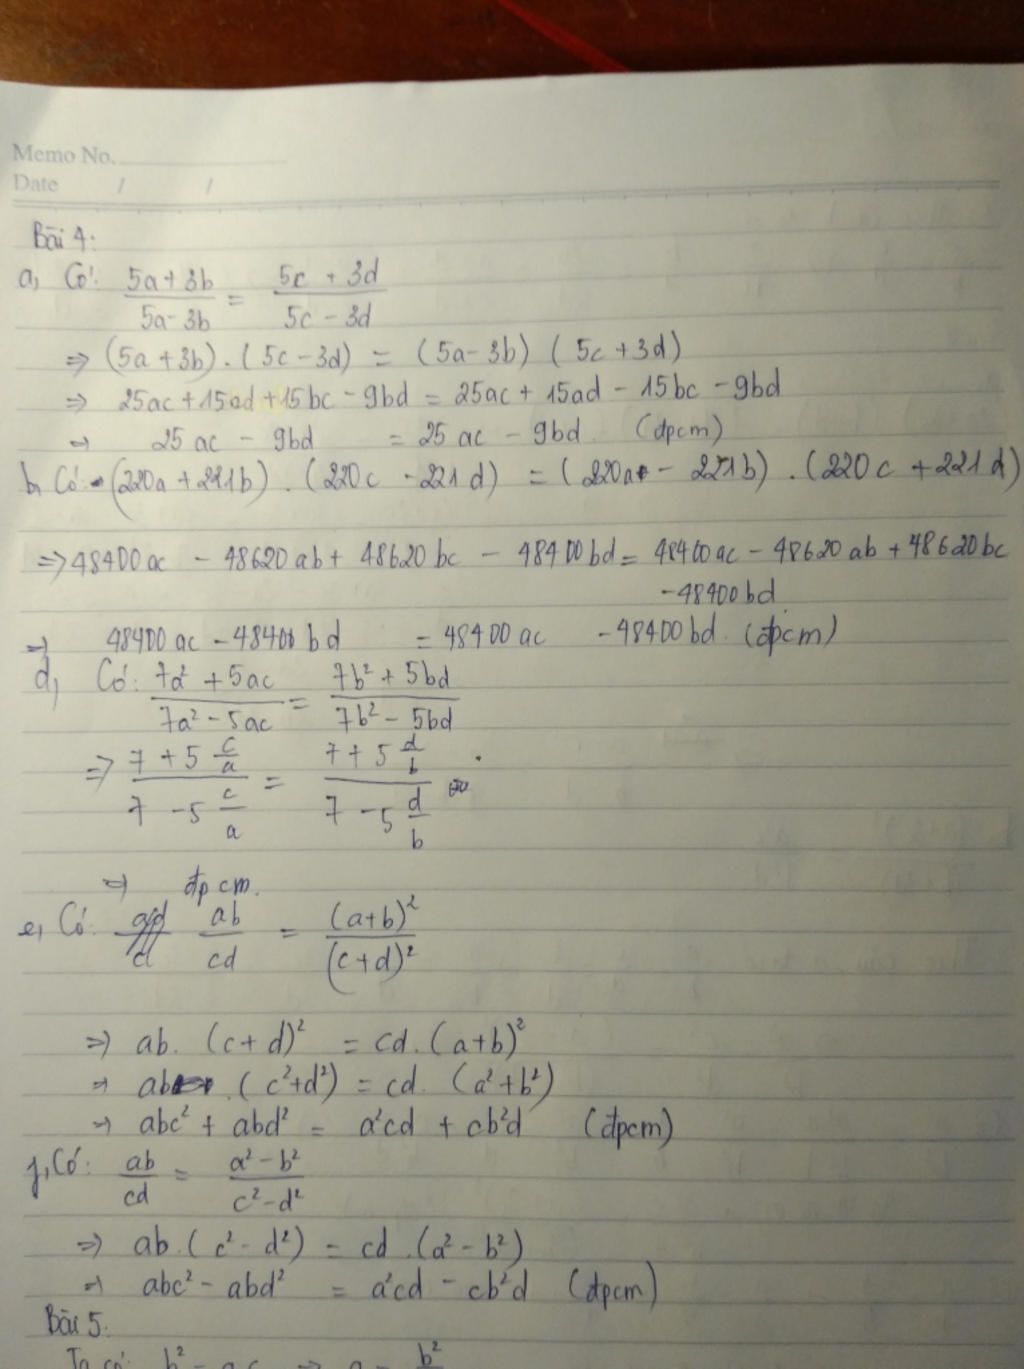 Memo No.
Date / /
Bài 4:
a, Có: (5a + 3b)/(5a - 3b) = (5c + 3d)/(5c - 3d)
⇒ (5a + 3b) . (5c - 3d) = (5a - 3b) (5c + 3d)
⇒ 25ac + 15ad + 15bc - 9bd = 25ac + 15ad - 15bc - 9bd
⇒ 25 ac - 9bd = 25 ac - 9bd (đpcm)
b, Có: (220a + 221b) . (220c - 221d) = (220a - 221b) . (220c + 221d)
⇒ 48400 ac - 48620 ab + 48620 bc - 48400 bd = 48400 ac - 48620 ab + 48620 bc
- 48400 bd
⇒ 48400 ac - 48400 bd = 48400 ac - 48400 bd. (đpcm)
d, Có: (7a² + 5ac)/(7a² - 5ac) = (7b² + 5bd)/(7b² - 5bd)
⇒ (7 + 5 c/a)/(7 - 5 c/a) = (7 + 5 d/b)/(7 - 5 d/b)
⇒ đpcm.
e, Có: ab/cd = (a+b)²/(c+d)²
⇒ ab. (c + d)² = cd. (a+b)²
⇒ ab . (c²+d²) = cd. (a²+b²)
⇒ abc² + abd² = a²cd + cb²d (đpcm)
f, Có: ab/cd = (a² - b²)/(c² - d²)
⇒ ab . (c² - d²) = cd . (a² - b²)
⇒ abc² - abd² = a²cd - cb²d (đpcm)
Bài 5.
Ta có: b² = ac ⇒ a = b²